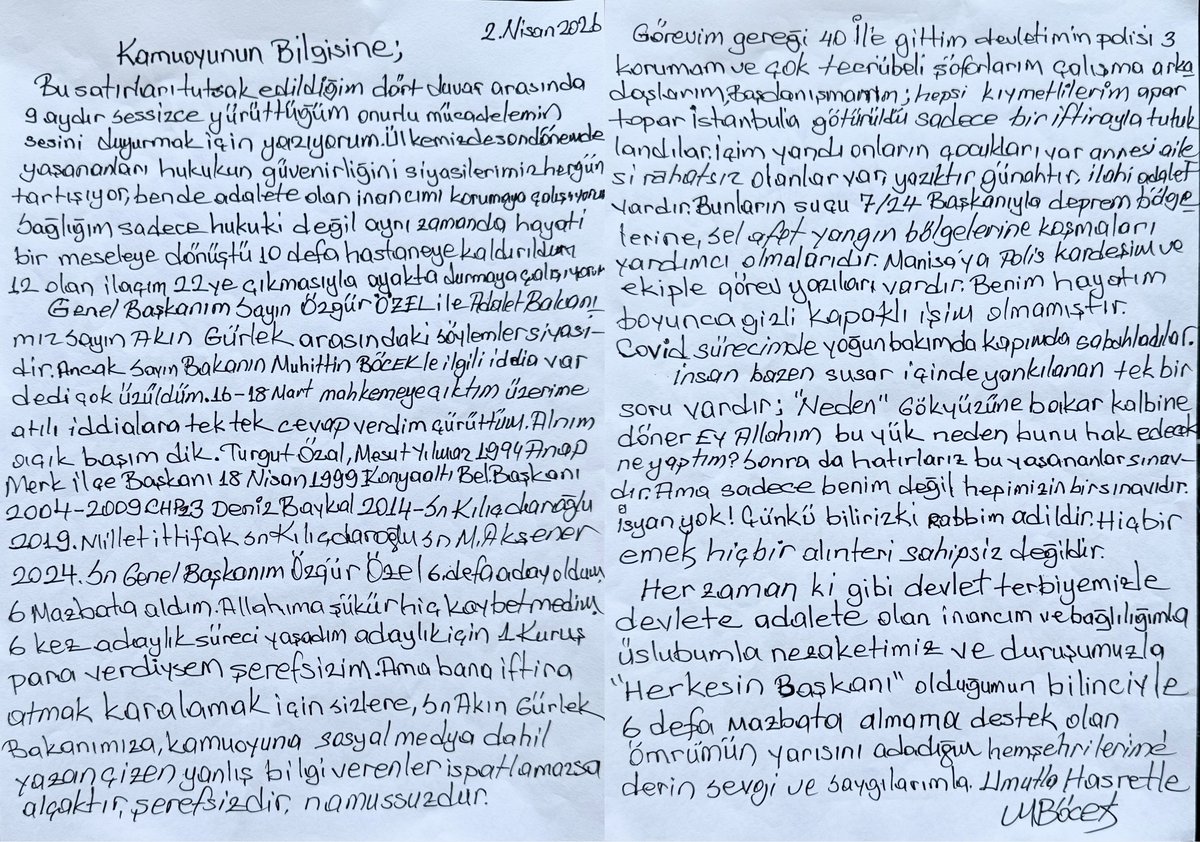 2.Nisan 2026
Kamuoyunun Bilgisine;
Bu satırları tutsak edildiğim dört duvar arasında
9 aydır sessizce yürüttüğüm onurlu mücadelemin
sesini duyurmak için yazıyorum. Ülkemizde son dönemde
yaşananları hukukun güvenirliğini siyasilerimiz hergün
tartışıyor, bende adalete olan inancımı korumaya çalışıyorum
Sağlığım sadece hukuki değil aynı zamanda hayati
bir meseleye dönüştü 10 defa hastaneye kaldırıldım
12 olan ilaçım 22 ye çıkmasıyla ayakta durmaya çalışıyorum
Genel Başkanım Sayın Özgür ÖZEL ile Adalet Bakanı
mız Sayın Akın Gürlek arasındaki söylemler siyasi-
dir. Ancak Sayın Bakanın Muhittin BÖCEK le ilgili iddia var
dedi çok üzüldüm. 16-18 Mart mahkemeye çıktım üzerine
atılı iddialara tek tek cevap verdim çürüttüm. Alnım
açık başım dik. Turgut Özal, Mesut Yılmaz 1994 Anap
Merk ilçe Başkanı 18 Nisan 1999 Konyaaltı Bel. Başkanı
2004-2009 CHP Deniz Baykal 2014-Sn Kılıçdaroğlu
2019. Millet ittifak Sn Kılıçdaroğlu Sn M. Akşener
2024. Sn Genel Başkanım Özgür Özel 6. defa aday oldum
6 Mazbata aldım. Allahıma şükür hiç kaybetmedim.
6 kez adaylık süreci yaşadım adaylık için 1 Kuruş
para verdiysem şerefsizim. Ama bana iftira
atmak karalamak için sizlere, Sn Akın Gürlek
Bakanımıza, kamuoyuna sosyal medya dahil
yazan çizen yanlış bilgi verenler ispatlamazsa
alçaktır, şerefsizdir, namussuzdur.
Görevim gereği 40 İl'e gittim devletimin polisi 3
korumam ve çok tecrübeli şöforlarım çalışma arka
daşlarım, Başdanışmanım; hepsi kıymetlilerim apar
topar istanbula götürüldü sadece bir iftirayla tutuk
landılar. içim yandı onların çocukları var annesi aile
si rahatsız olanlar var, yazıktır günahtır, ilahi adalet
vardır. Bunların suçu 7/24 Başkanıyla deprem bölge
lerine, sel afet yangın bölgelerine koşmaları
yardımcı olmalarıdır. Manisa'ya Polis kardeşim ve
ekiple görev yazıları vardır. Benim hayatım
boyunca gizli kapaklı işim olmamıştır.
Covid sürecimde yoğun bakımda kapımda sabahladılar.
insan bazen susar içinde yankılanan tek bir
soru vardır; "Neden" Gökyüzüne bakar kalbine
döner Ey Allahım bu yük neden bunu hak edecek
ne yaptım? Sonra da hatırlarız bu yaşananlar sınav-
dır. Ama sadece benim değil hepimizin bir sınavıdır.
isyan yok! Çünkü bilirizki Rabbim adildir. Hiçbir
emek hiçbir alınteri sahipsiz değildir.
Her zaman ki gibi devlet terbiyemizle
devlete adalete olan inancım ve bağlılığımla
üslubumla nezaketimiz ve duruşumuzla
"Herkesin Başkanı" olduğumun bilinciyle
6 defa Mazbata almama destek olan
ömrümün yarısını adadığım hemşehrilerime
derin sevgi ve saygılarımla. Umutla Hasretle
MBöcek